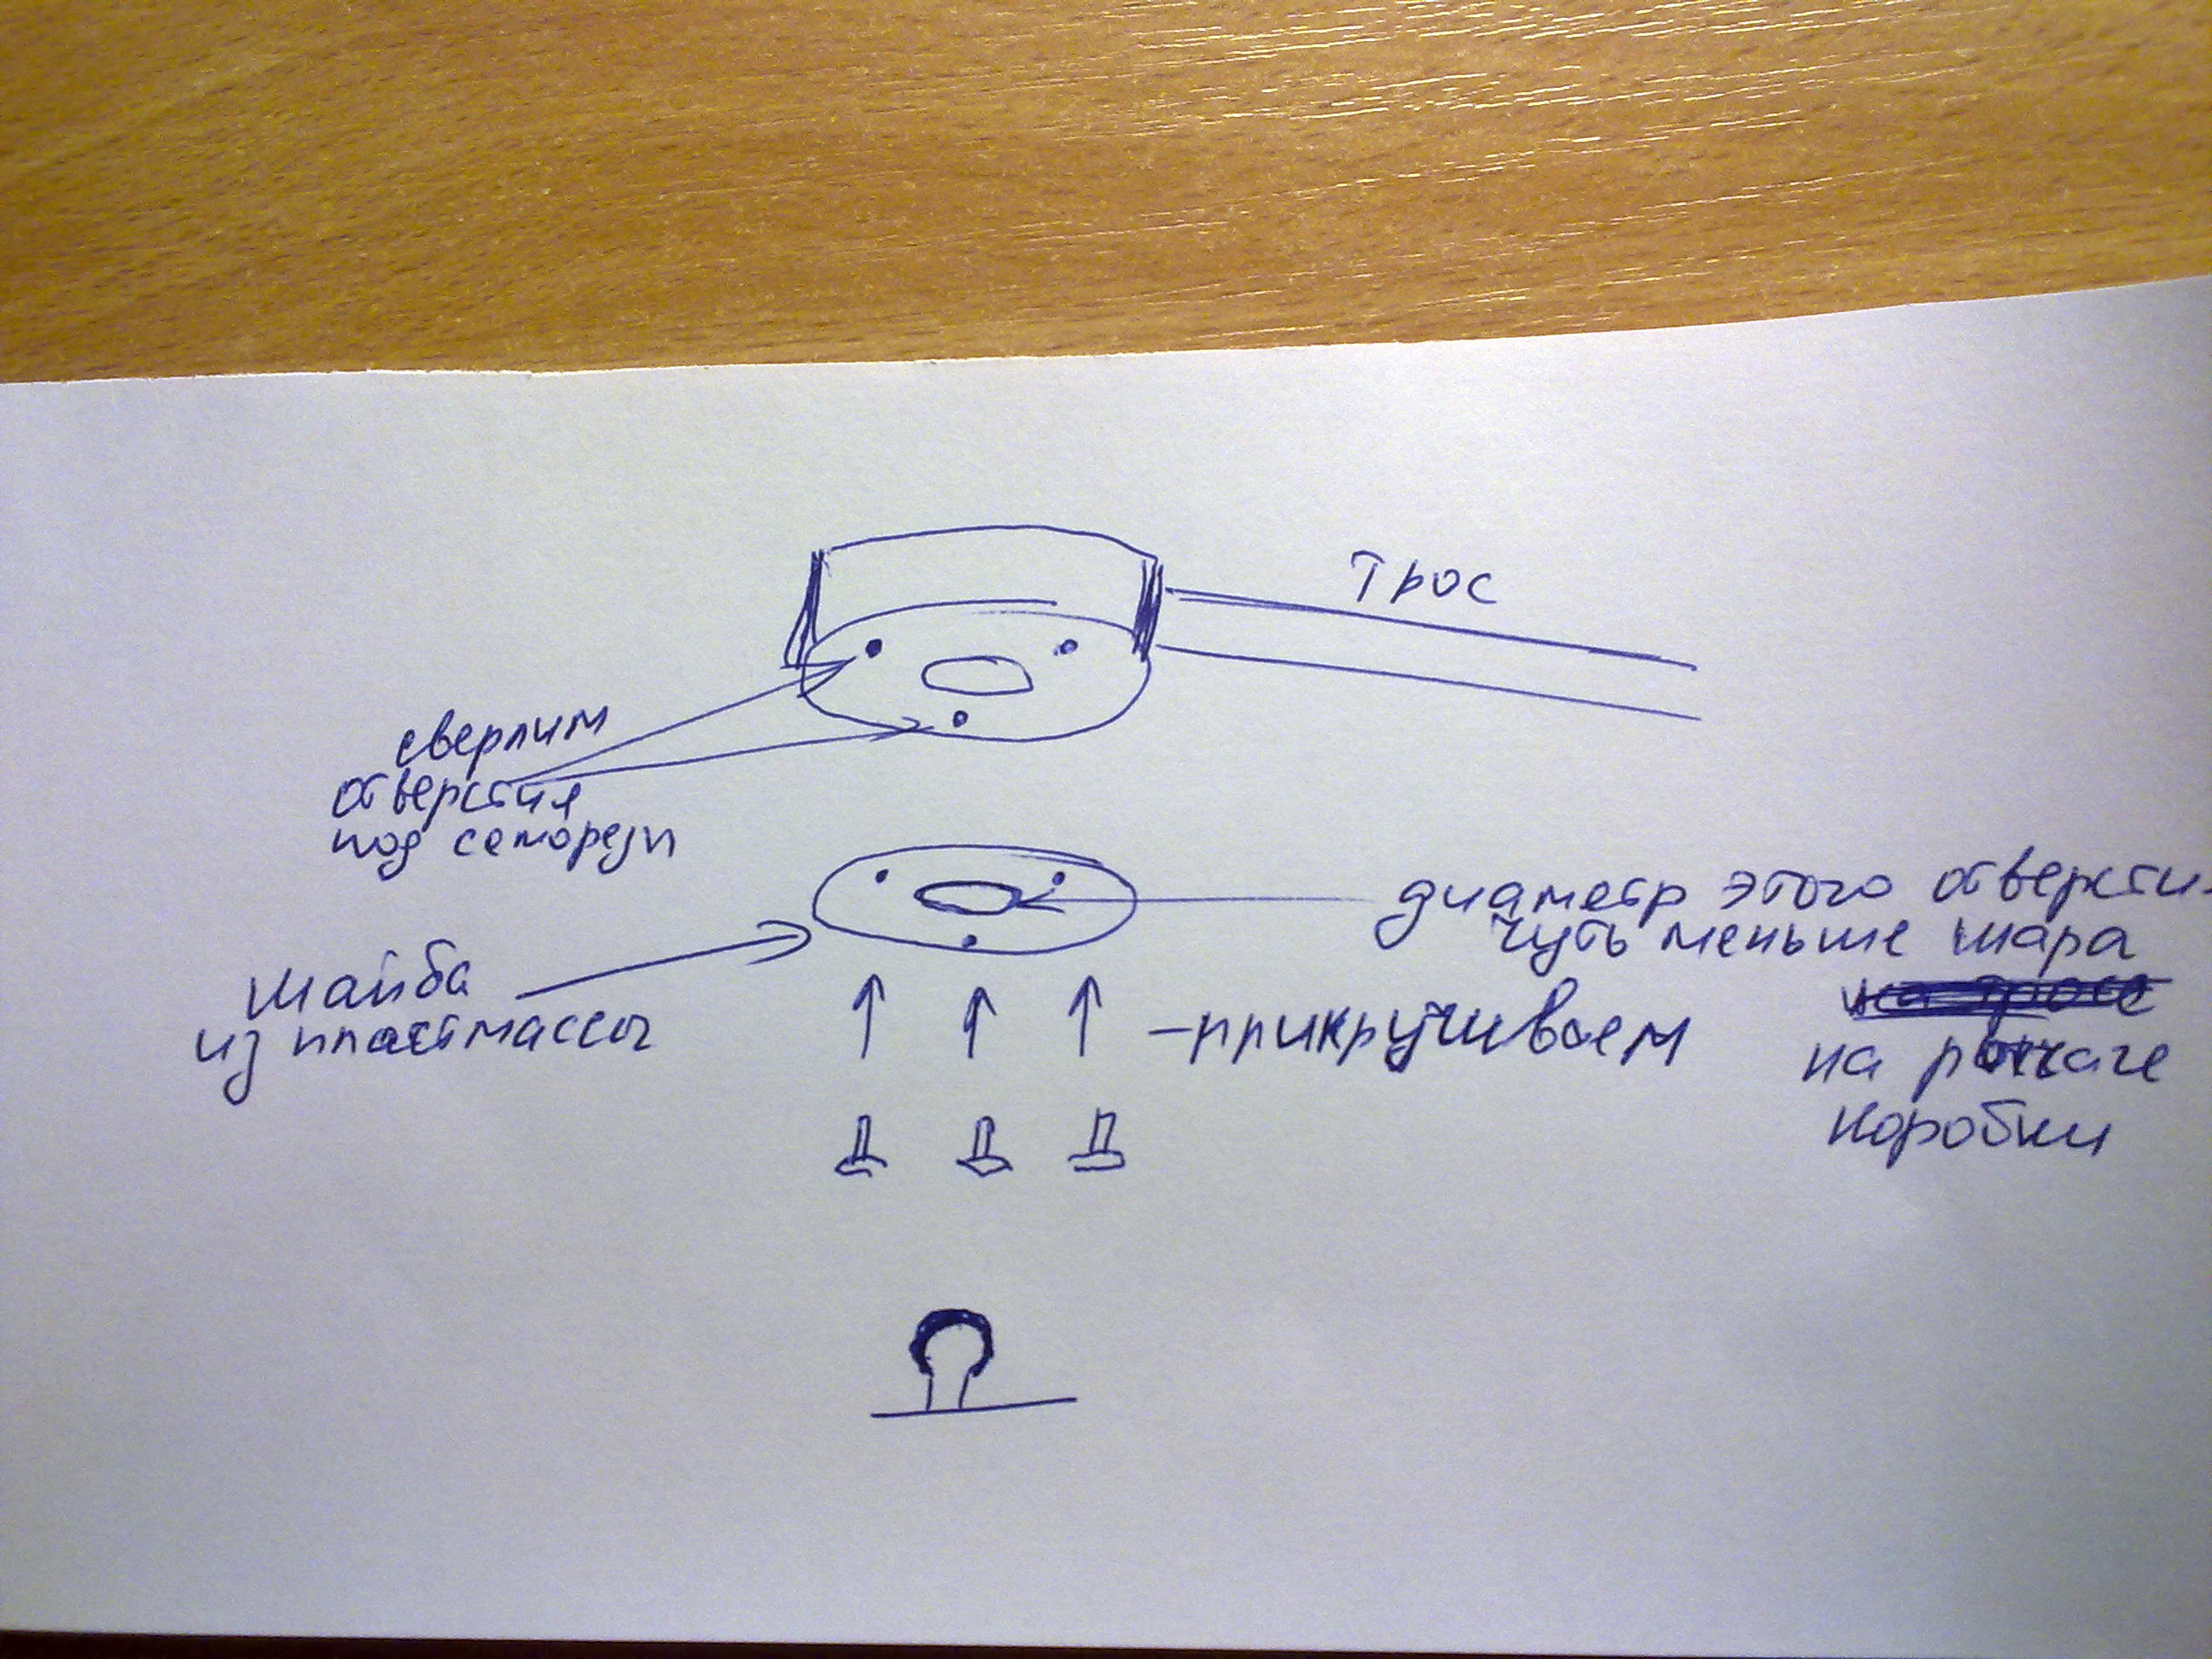 Трос
сверлим
отверстия
под саморезы
диаметр этого отверсти
чуть меньше шара
на рычаге
коробки
шайба
из пластмассы
-прикручиваем